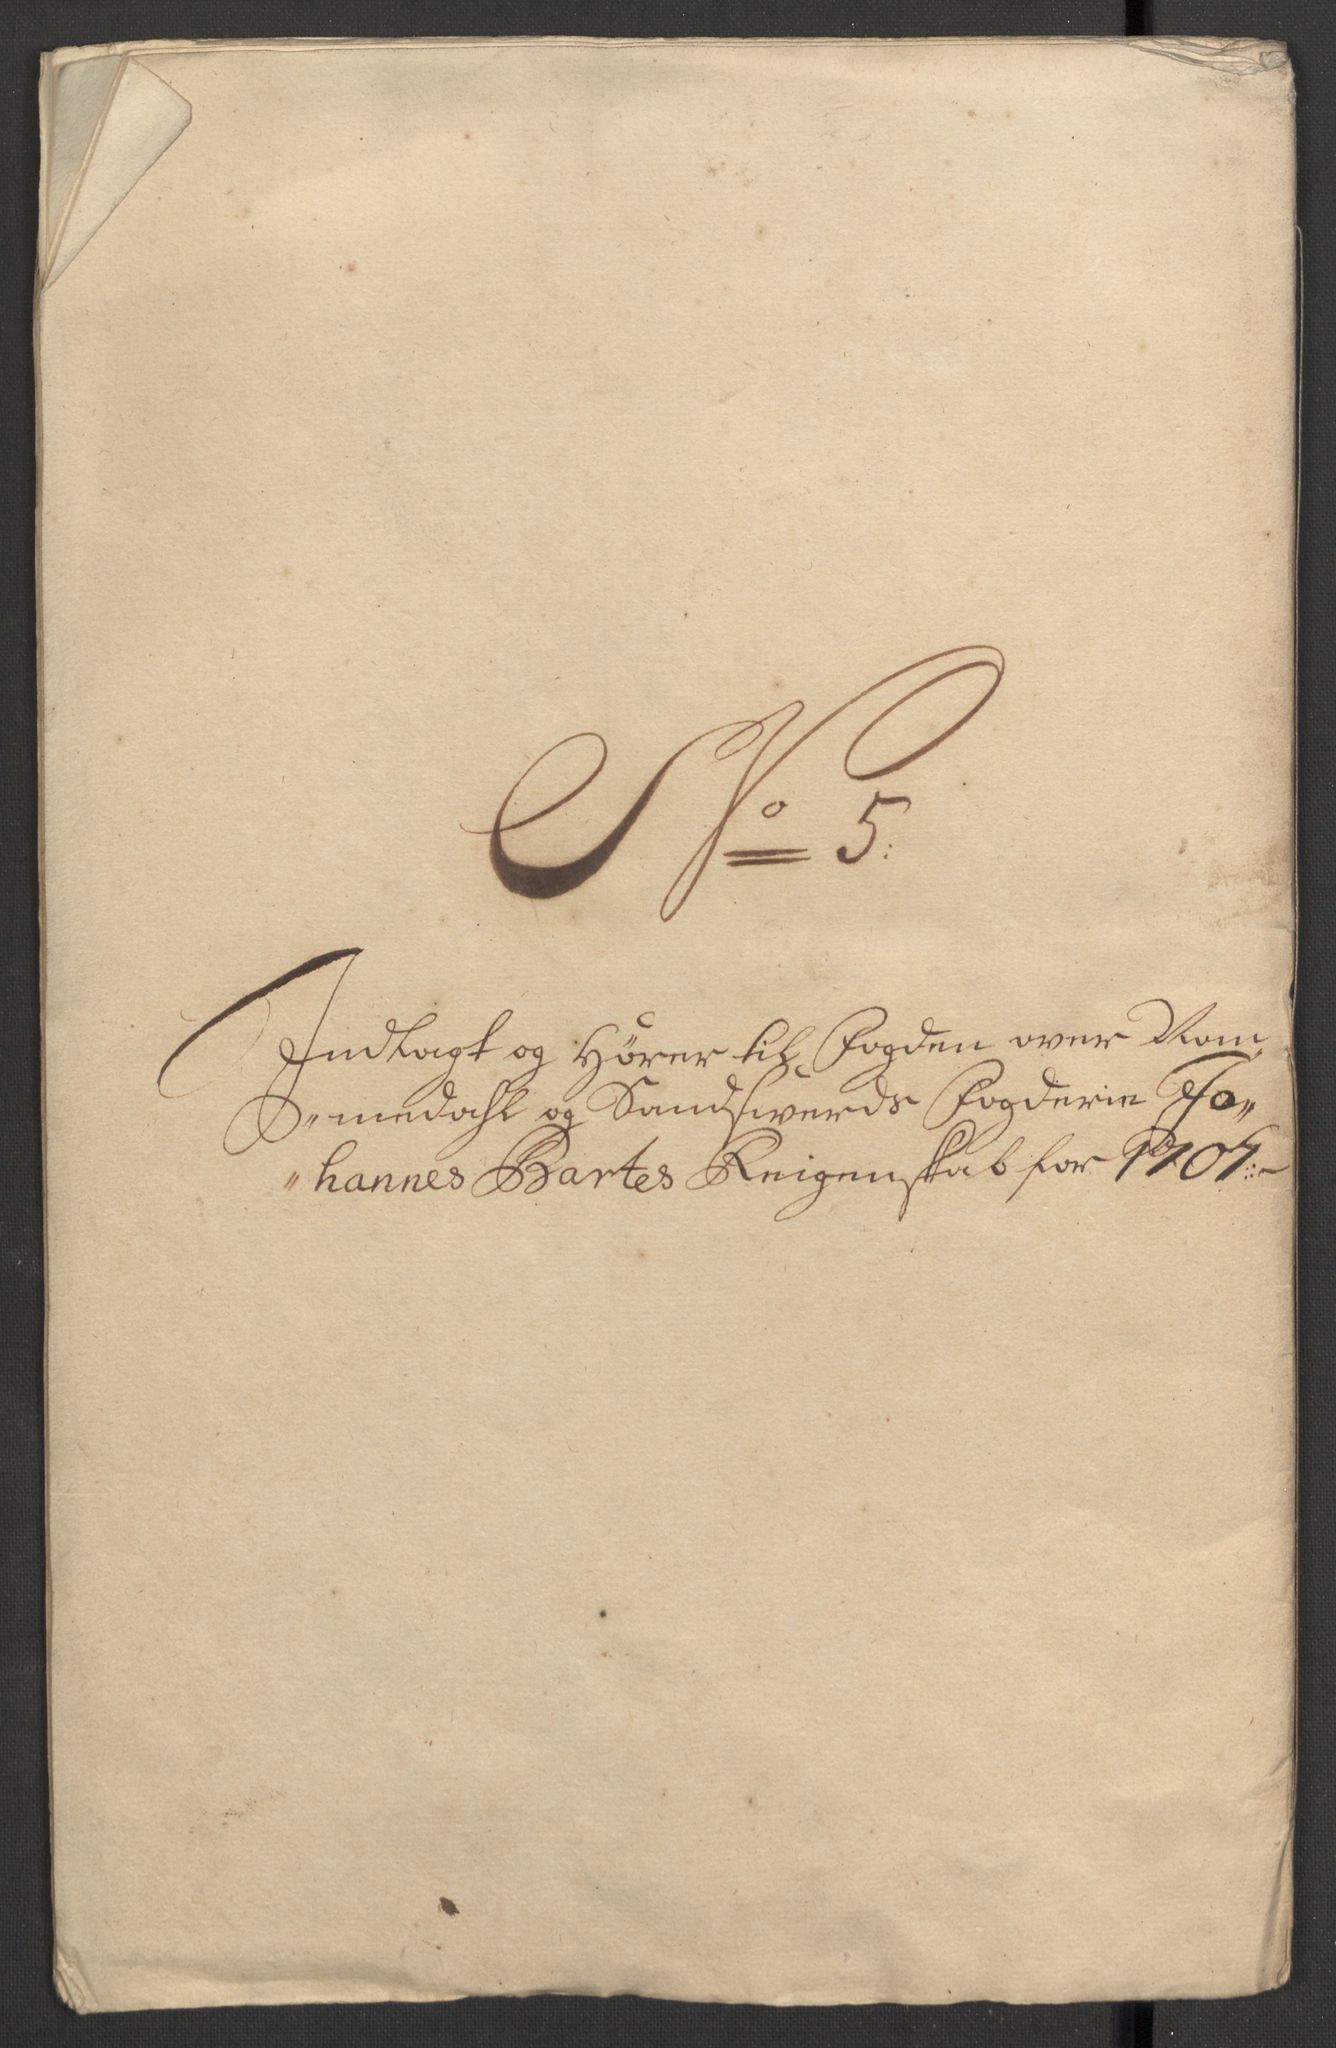 No 5:
Indlagt og Hører til Fogden over Nom„
„medahl og Sandsverds Fogderie Jo„
„hannes Bartes Reigenskab for 1707: